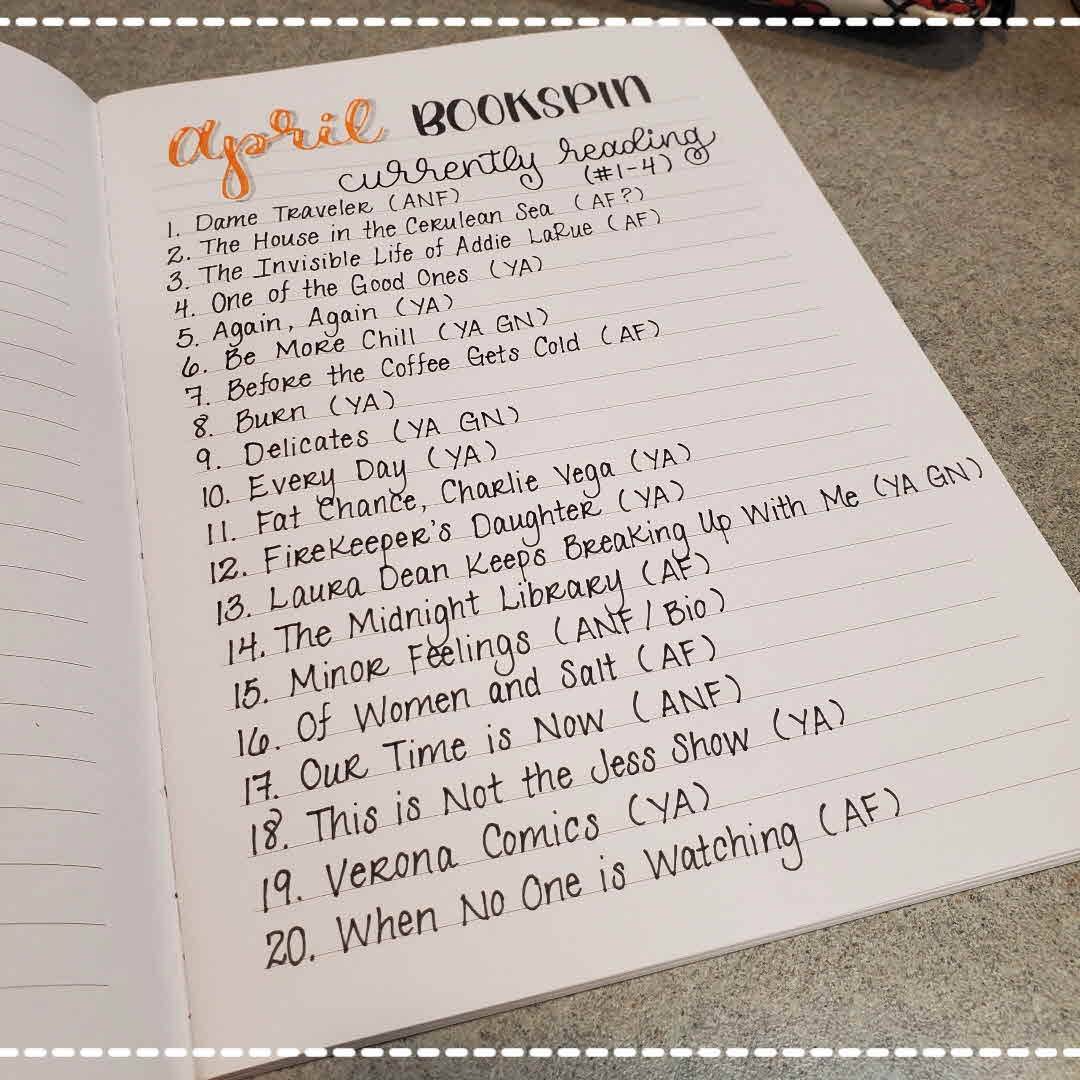 april BOOKSPIN
currently reading
(#1-4)
1. Dame Traveler (ANF)
2. The House in the Cerulean Sea (AF?)
3. The Invisible Life of Addie LaRue (AF)
4. One of the Good Ones (YA)
5. Again, Again (YA)
6. Be More Chill (YA GN)
7. Before the Coffee Gets Cold (AF)
8. Burn (YA)
9. Delicates (YA GN)
10. Every Day (YA)
11. Fat Chance, Charlie Vega (YA)
12. Firekeeper's Daughter (YA)
13. Laura Dean Keeps Breaking Up With Me (YA GN)
14. The Midnight Library (AF)
15. Minor Feelings (ANF/Bio)
16. Of Women and Salt (AF)
17. Our Time is Now (ANF)
18. This is Not the Jess Show (YA)
19. Verona Comics (YA)
20. When No One is Watching (AF)